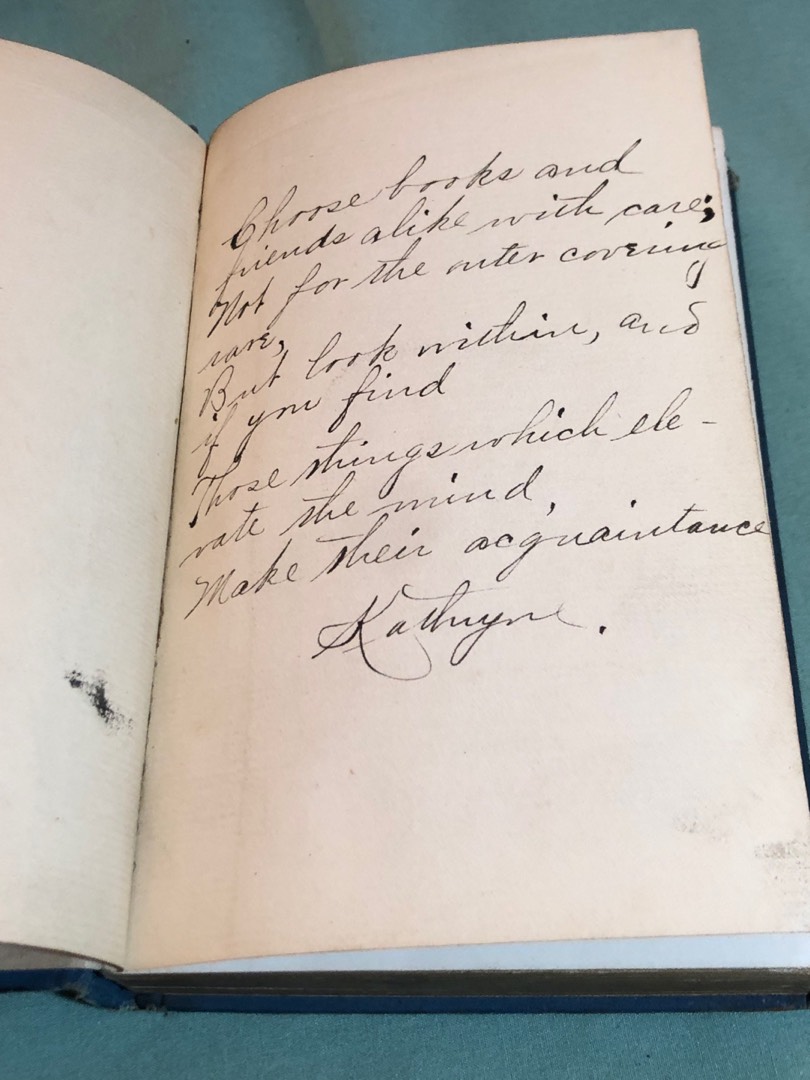 Choose books and
friends alike with care;
Not for the outer covering
rare,
But look within, and
if you find
Those things which ele-
vate the mind,
Make their acquaintance
Kathryne.